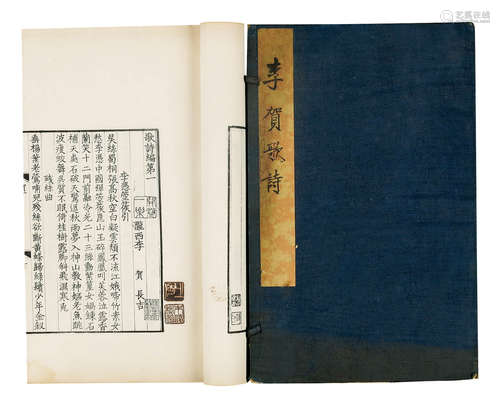 歌詩編第一
隴西李 賀 長吉
李憑箜篌引
吳絲蜀桐張高秋空白凝雲頹不流江娥啼竹素女
愁李憑中國彈箜篌崑山玉碎鳳凰叫芙蓉泣露香
蘭笑十二門前融冷光二十三絲動紫皇女媧鍊石
補天處石破天驚逗秋雨夢入神山教神嫗老魚跳
波瘦蛟舞吳質不眠倚桂樹露腳斜飛濕寒兔
殘絲曲
垂楊葉老鶯哺兒殘絲欲斷黃蜂歸綠鬢少年金釵
李賀歌詩
艺狐在线